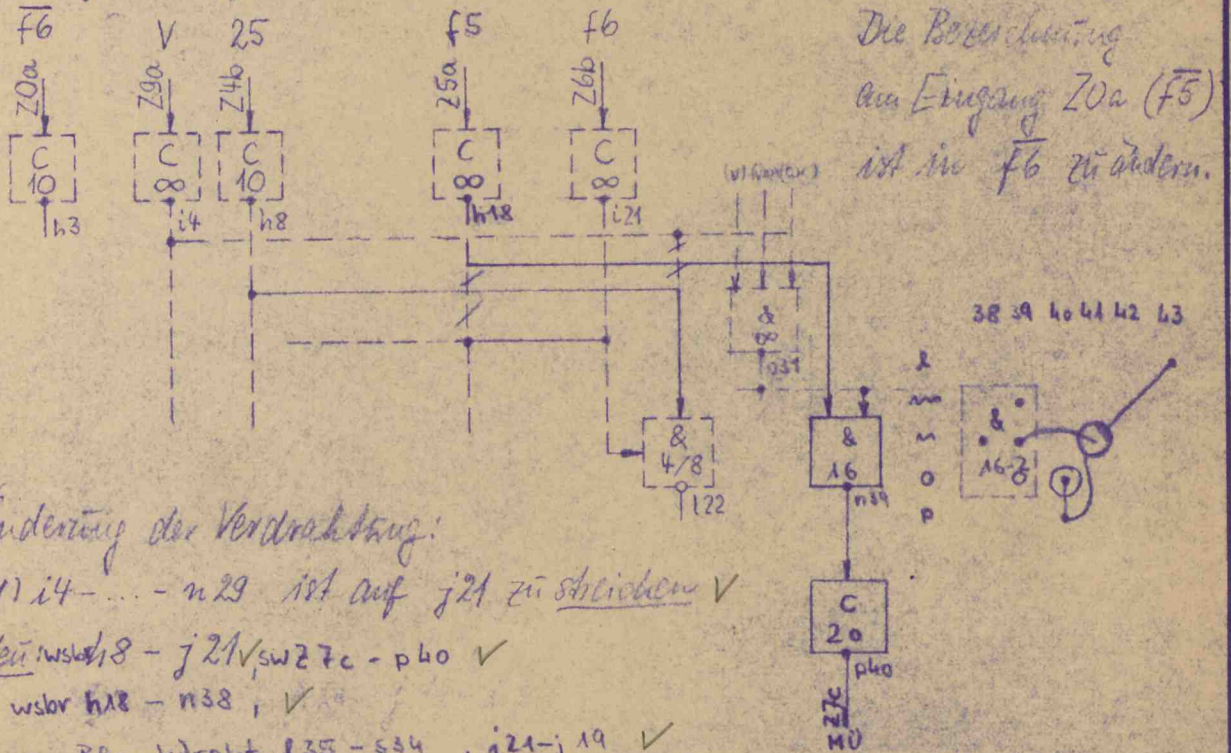 f̅6̅ V 25 f5 f6
Z0a Z9a Z4b Z5a Z6b
C 10 C ∞ C 10 C ∞ C ∞
h3 i4 h8 h18 i21
Die Bezeichnung
am Eingang Z0a (f̅5̅)
ist in f̅6̅ zu ändern.
& ∞
38 39 40 41 42 43
l
m
n
o
p
& 4/8
l22
& 16
n39
&
C
20
p40
Z7c
MÜ
nderung der Verdrahtung:
1) i4-...- n29 ist auf j21 zu streichen ✓
h8 - j21 ✓, sw Z7c - p40 ✓
wsbr h18 - n38, ✓
j21-j19 ✓